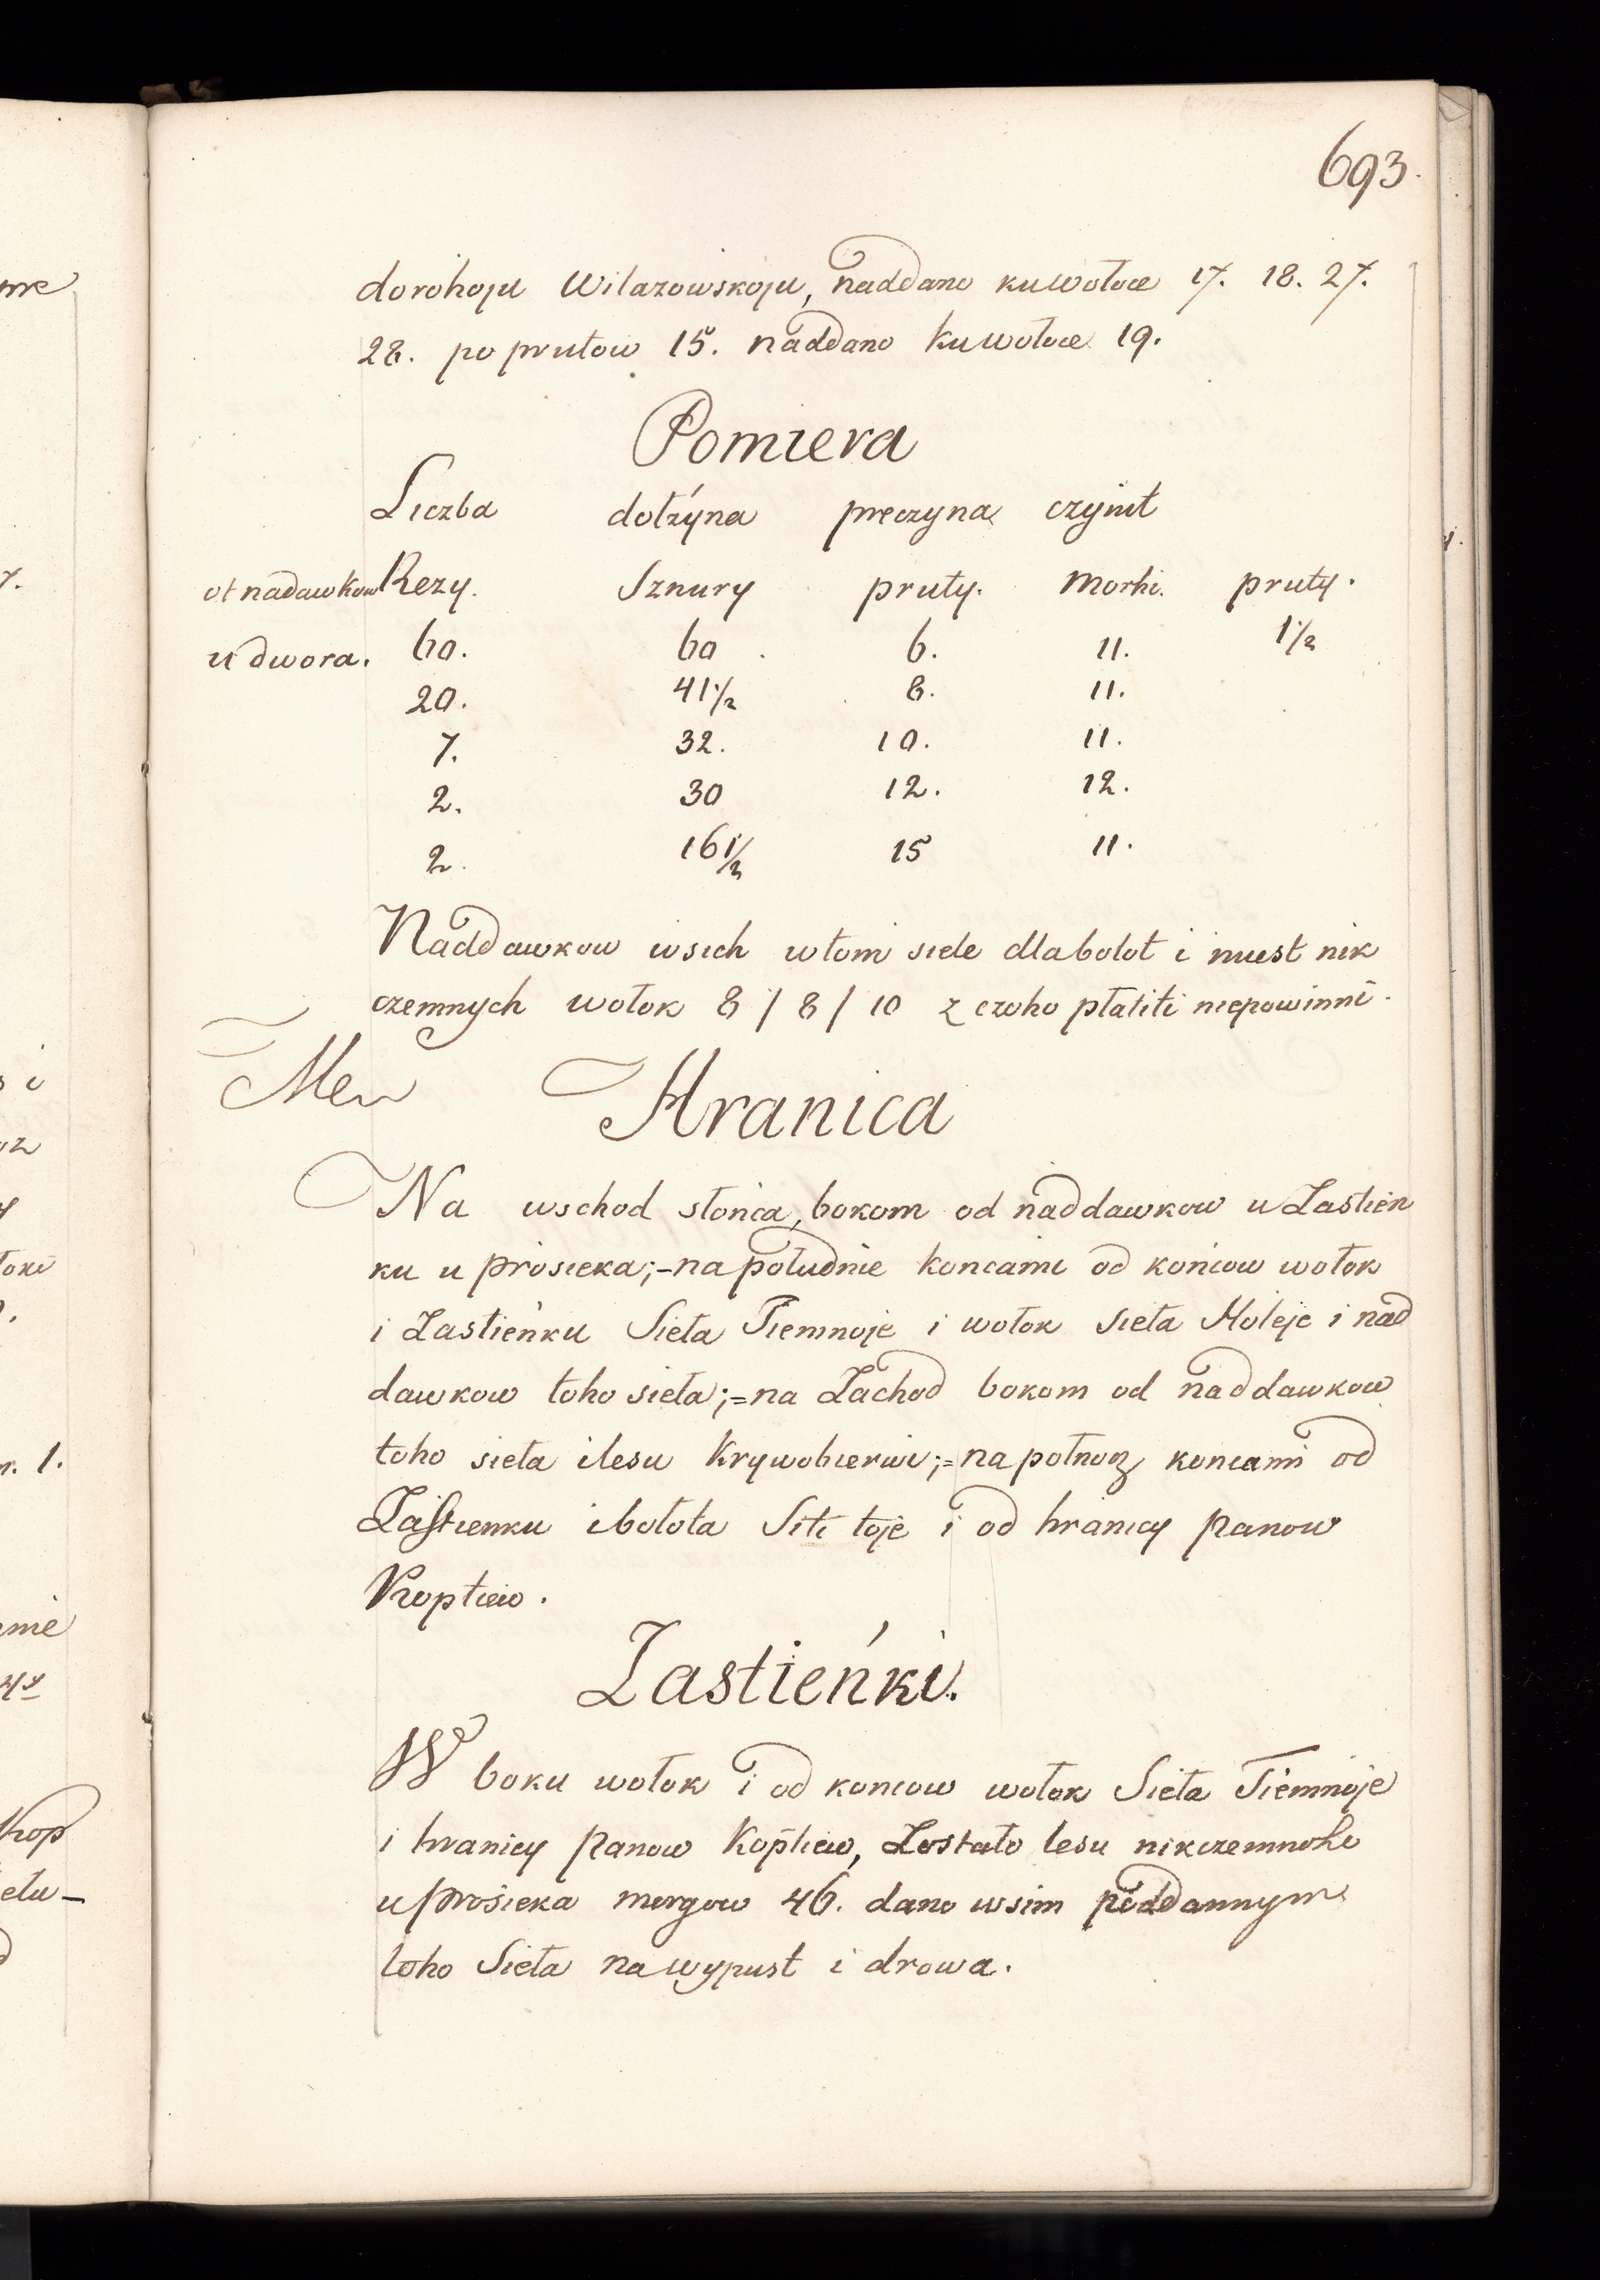 693.
dorohoju Wilazowskoju, naddano ku wołoce 17. 18. 27.
28. po prutow 15. naddano ku wołoce 19.
Pomiera
Liczba dołżyna preczyna czynit
ot nadawkow Rezy. Sznury pruty. Morhi. pruty.
u dwora. 60. 60 6. 11. 1½
20. 41½ 8. 11.
7. 32. 10. 11.
2. 30 12. 12.
2. 16½ 15 11.
Naddawkow wsich w tom siele dla bolot i miest nik
czemnych wołok 8 / 8 / 10 z czoho płatiti niepowinni.
Hranica
Na wschod słońca, bokom od naddawkow u Zastien
ku u prosieka;- na południe koncami od końcow wołok
i Zastieńku Sieła Tiemnoje i wołok sieła Holeje i nad
dawkow toho sieła;= na Zachod bokom od naddawkow
toho sieła i lesu Krywobierwi;= na połnoz koncami od
Zastienku i bołota Siti toje i od hranicy Panow
Kopciew.
Zastieńki.
W boku wołok i od koncow wołok Sieła Tiemnoje
i hranicy Panow Kopciew, Zostało lesu nikczemnoho
u prosieka morgow 46. dano wsim poddannym
toho Sieła na wypust i drowa.